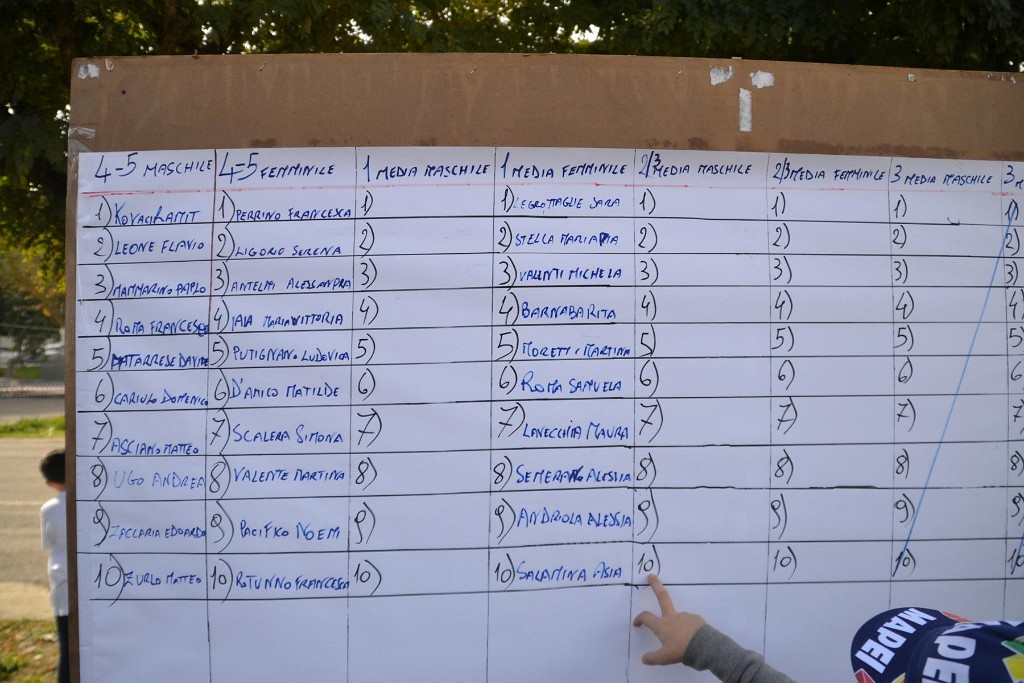 4-5 MASCHILE 4-5 FEMMINILE 1 MEDIA MASCHILE 1 MEDIA FEMMINILE 2/3 MEDIA MASCHILE 2/3 MEDIA FEMMINILE 3 MEDIA MASCHILE 3 M
1) 1) PERRINO FRANCESCA 1) 1) LEGROTTAGLIE SARA 1) 1) 1) 1)
2) LEONE FLAVIO 2) LIGORIO SERENA 2) 2) STELLA MARIAPIA 2) 2) 2) 2)
3) MAMMARINO PAPLO 3) ANTELMI ALESSANDRA 3) 3) VALENTI MICHELA 3) 3) 3) 3)
4) ROMA FRANCESCO 4) IAIA MARIA VITTORIA 4) 4) BARNABA RITA 4) 4) 4) 4)
5) MATARRESE DAVIDE 5) PUTIGNANO LUDOVICA 5) 5) MORETTI MARTINA 5) 5) 5) 5)
6) CARIULO DOMENICO 6) D'AMICO MATILDE 6) 6) ROMA SAMUELA 6) 6) 6) 6
7) ASCIANO MATTEO 7) SCALERA SIMONA 7) 7) LAVECCHIA MAURA 7) 7) 7) 7
8) UGO ANDREA 8) VALENTE MARTINA 8) 8) SEMERANO ALESSIA 8) 8) 8) 8
9) ZACCARIA EDOARDO 9) PACIFICO NOEMI 9) 9) ANDRIOLA ALESSIA 9) 9) 9) 9
10) ZURLO MATTEO 10) ROTUNNO FRANCESCA 10) 10) SALAMINA ASIA 10) 10) 10) 10
MAPEI
MAPEI